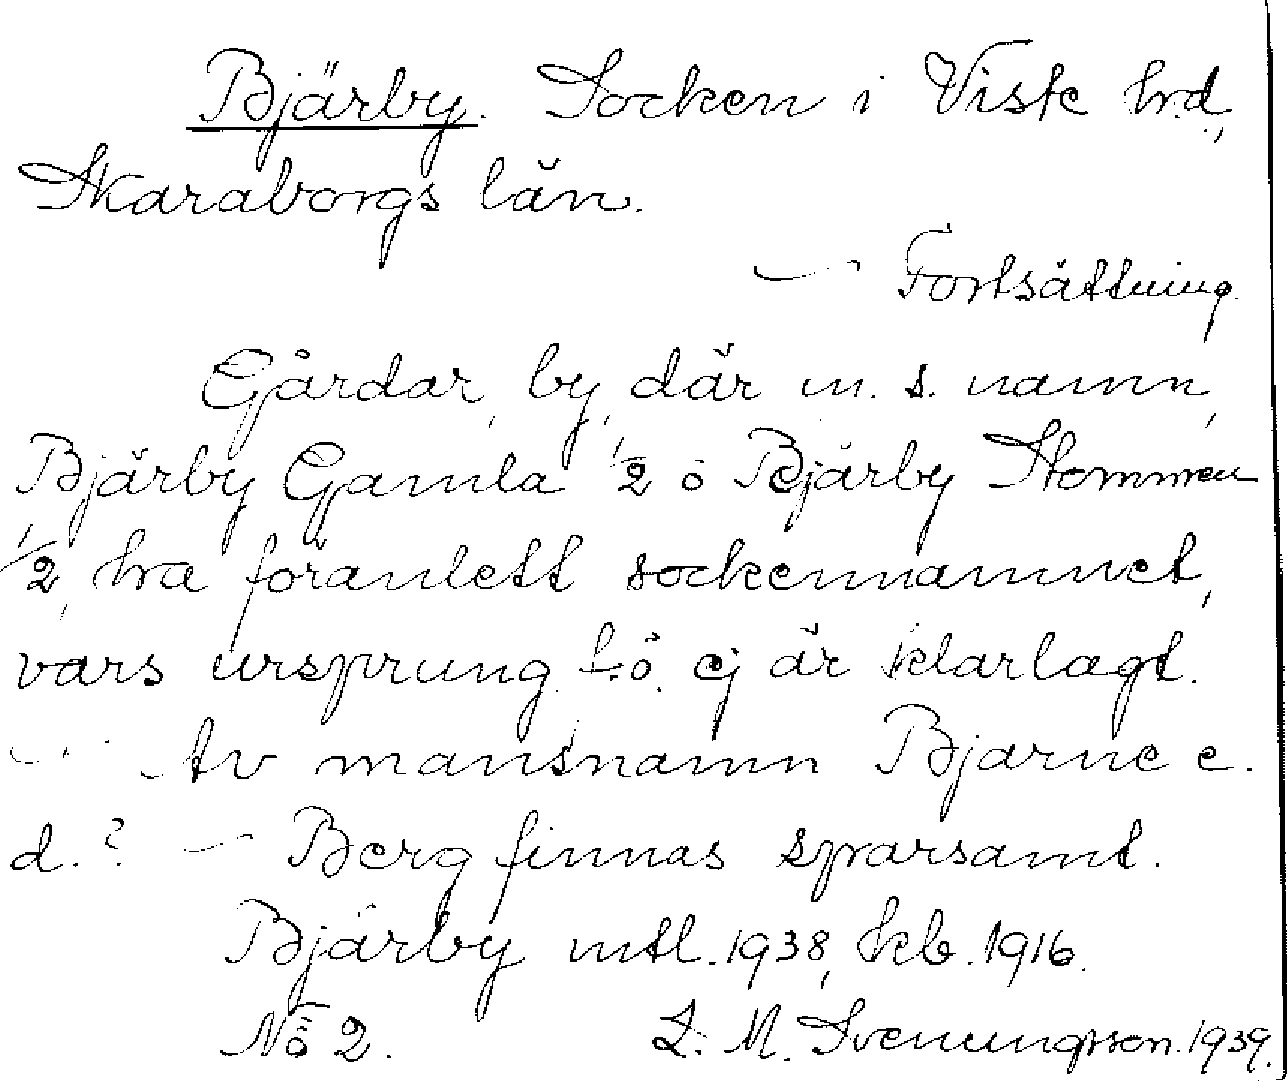 Bjärby. Socken i Viste hrd.,
Skaraborgs län.
— Fortsättning.
Gårdar, by, där m. s. namn,
Bjärby Gamla 1/2 o Bjärby Stommen
1/2, ha föranlett sockennamnet,
vars ursprung t.ö. ej är klarlagt.
— Av mansnamn Bjarne e.
d.? — Berg finnas sparsamt.
Bjärby mtl. 1938, kb. 1916.
No 2. L. M. Svenungsson. 1939.